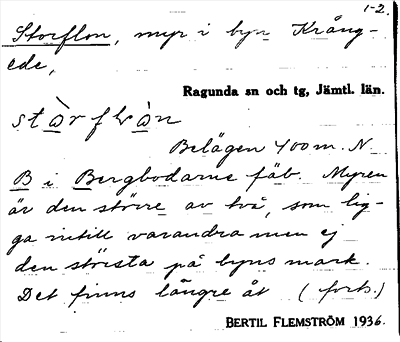 1-2.
Storflon, myr i byn Krång-
ede,
Ragunda sn och tg, Jämtl. län.
stàrflʋàn
Belägen 400 m. N
B i Bergbodarne fäb. Myren
är den större av två, som lig-
ga intill varandra men ej
den största på byns mark.
Det finns längre åt (forts.)
BERTIL FLEMSTRÖM 1936.